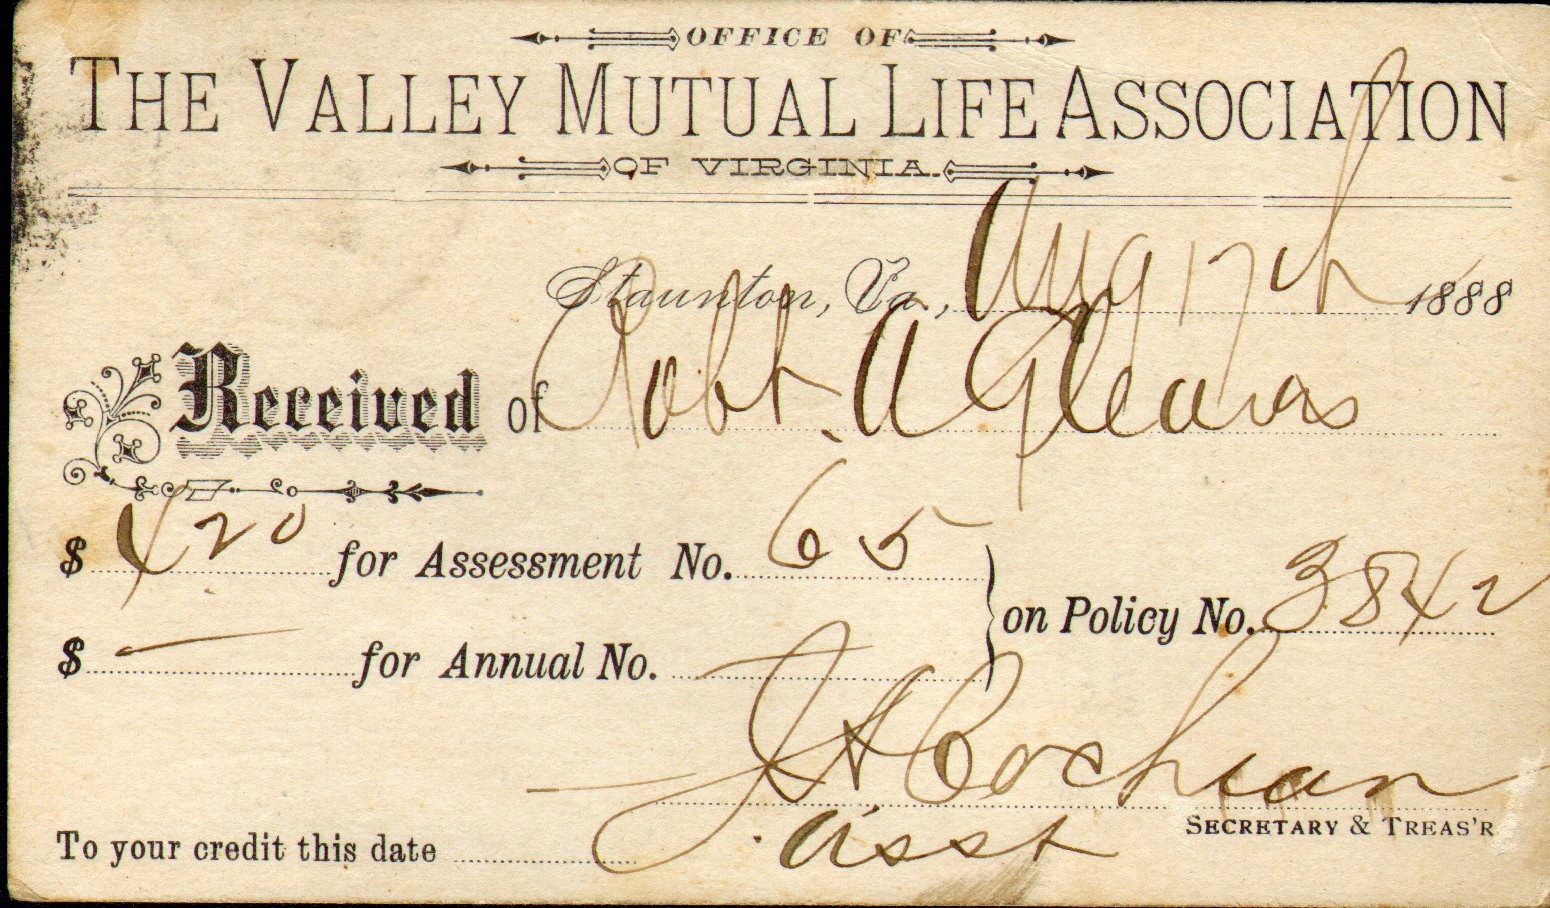 OFFICE OF
THE VALLEY MUTUAL LIFE ASSOCIATION
OF VIRGINIA.
Staunton, Va., Aug 17th 1888
Received of Robt. A Gleaves
$ 420 for Assessment No. 65
on Policy No. 3842
$ — for Annual No.
J A Cochran
SECRETARY & TREAS'R
asst
To your credit this date